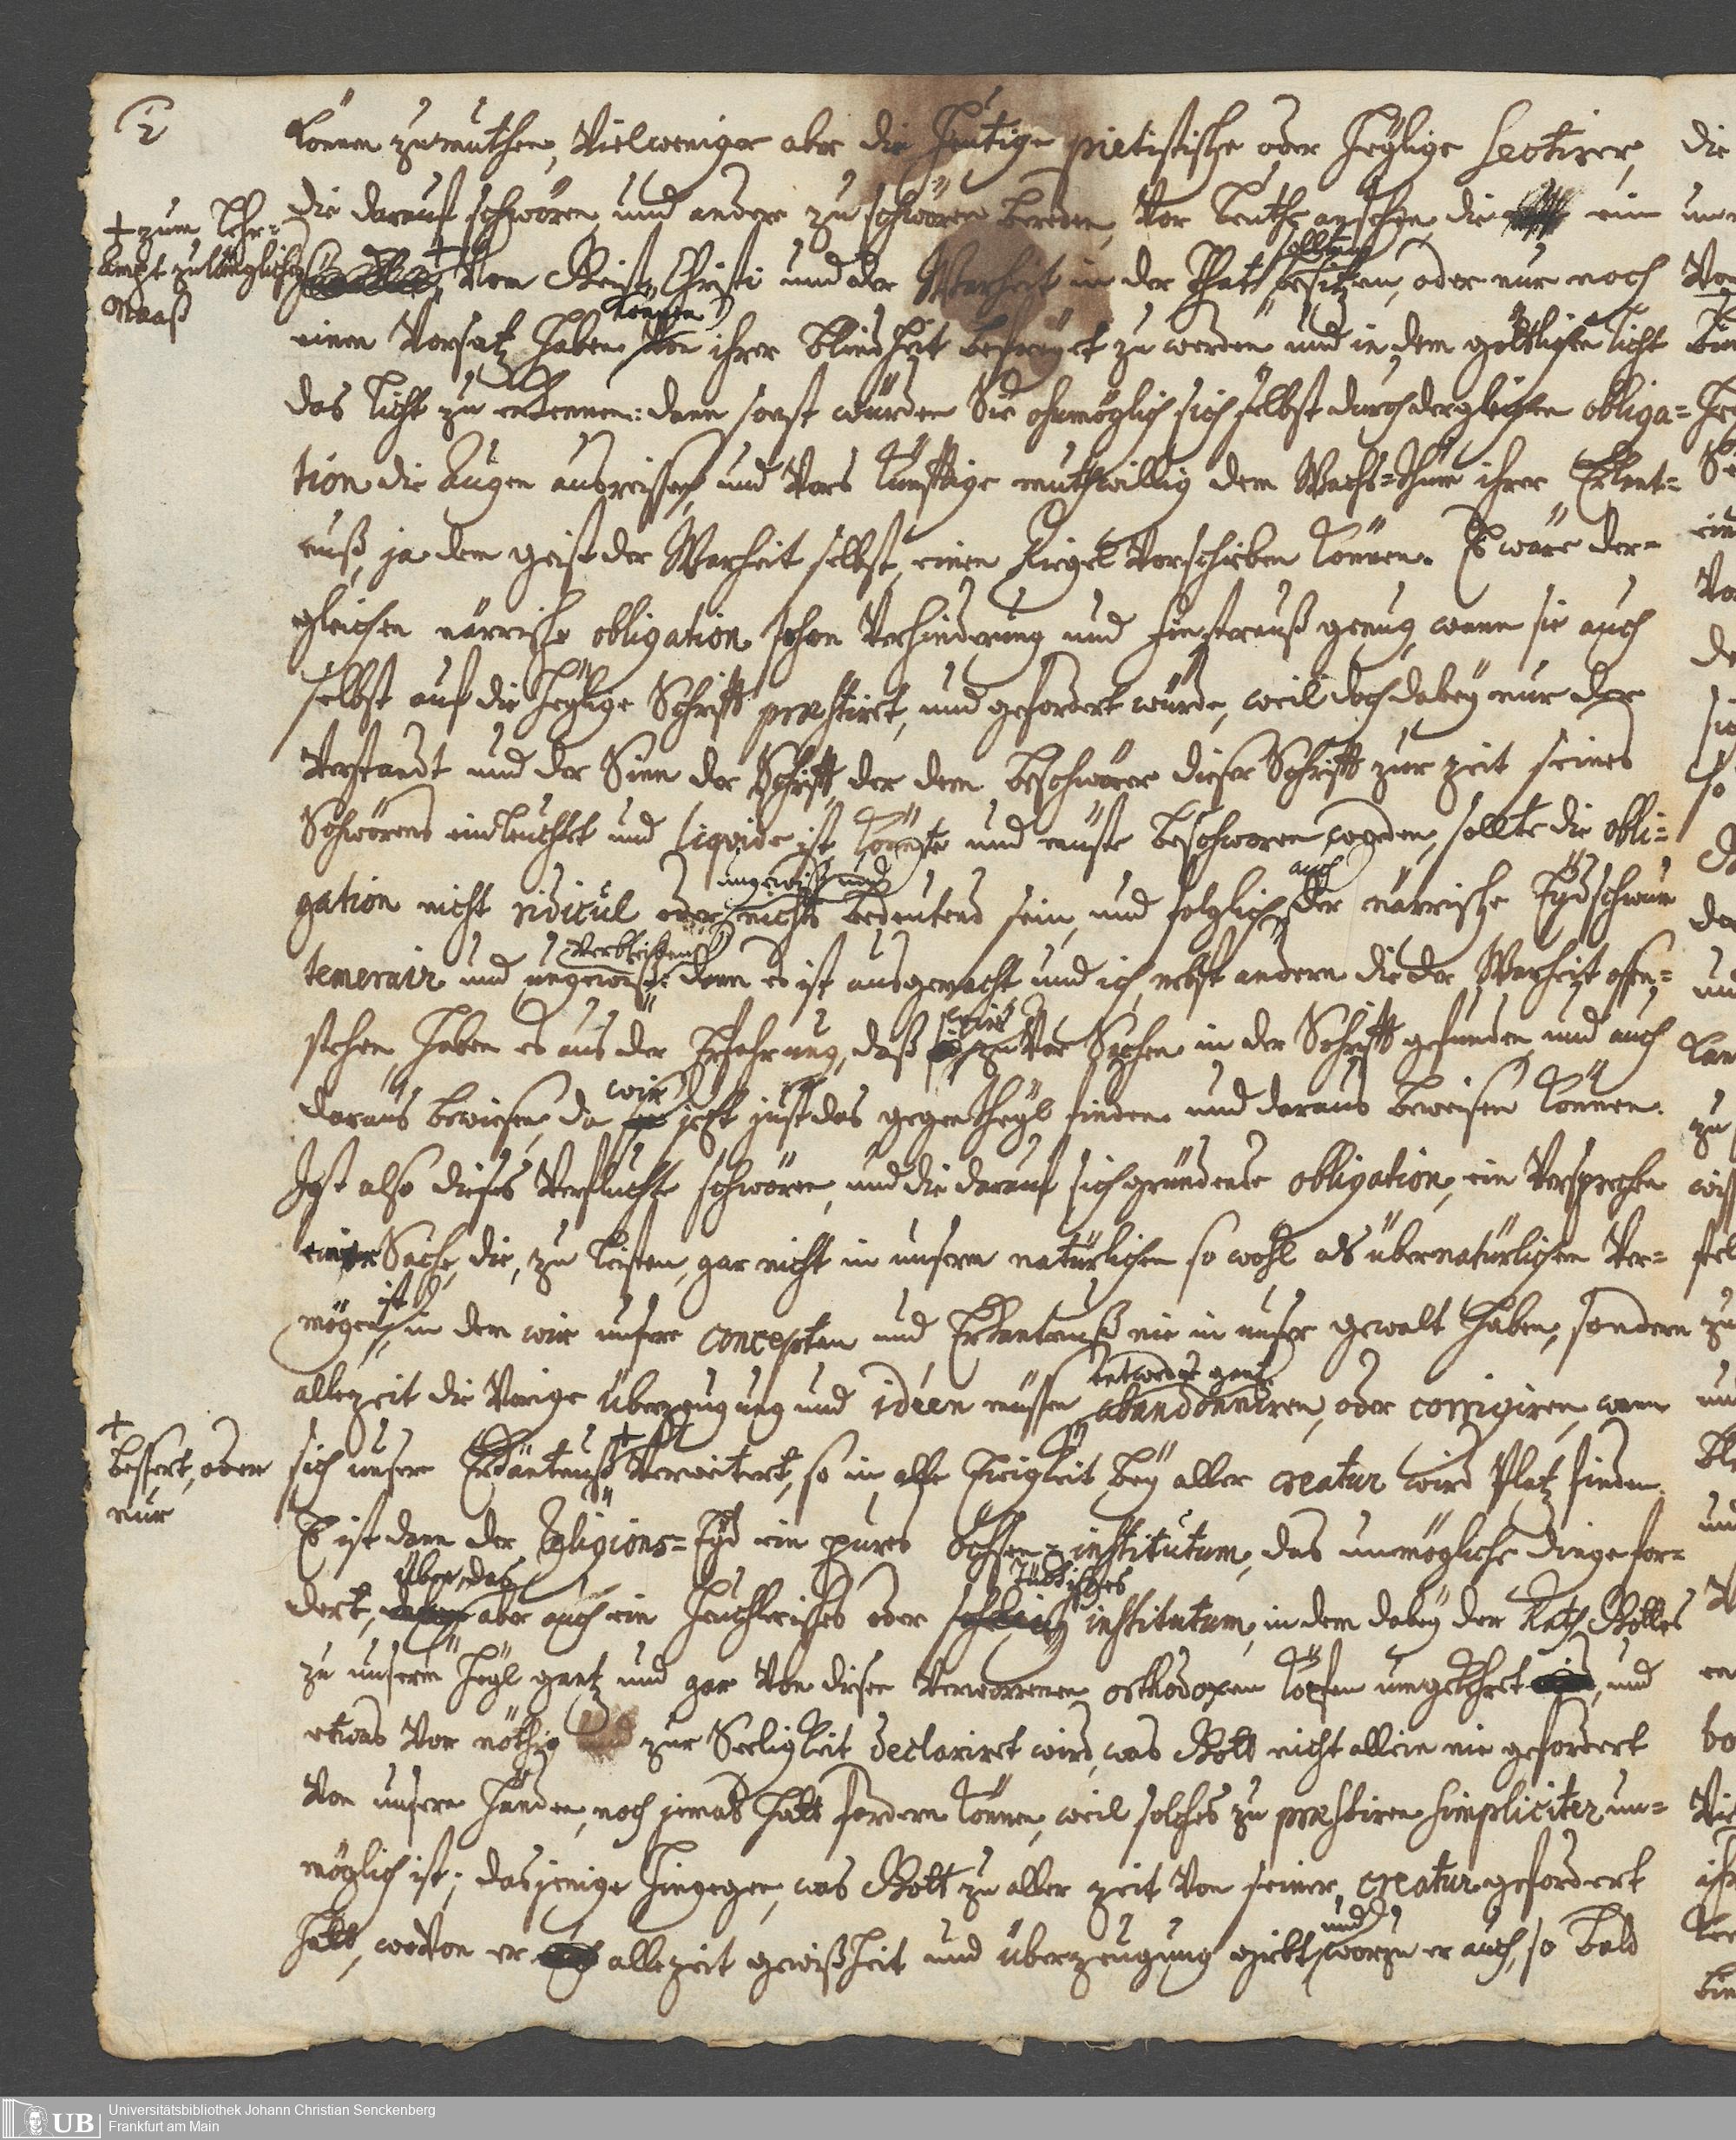 2
können zumuthen, Vielweniger aber die heutige pietistische oder heylige Sectirer,
die darauf schwören, und andere zu schwören bereden, vor Leuthe ansehen, die ein
+ zum Lehr-
Ampt zulängliches
Maaß
+ vom Geist Christi und der Warheit in der That sollten besitzen, oder nur noch
einen Vorsatz haben können von ihrer Blindheit befreyet zu werden und in dem göttlichen licht
das Licht zu erkennen: dann sonst würden Sie ohnmöglich sich selbst durch dergleichen obliga-
tion die Augen ausreissen, und vors künfftige muthwillig dem Wachs-thum ihrer Erkant-
nuß, ja dem geist der Warheit selbst, einen Riegel vorschieben können. Es wäre der-
gleichen närrische obligation schon Verhinderung und Finsternuß genug, wann sie auch
selbst auf die heylige Schrifft præstiret, und gefordert würde, weil doch dabey nur der
Verstandt und der Sinn der Schrifft, der dem beschwörer dieser Schrifft zur zeit seines
Schwörens einleuchtet und liqvide ist, könnte und müste beschworen werden, sollte die obli-
gation nicht ridicul oder ungewiß und nichts bedeutend sein, und folglich auch der närrische Eydschwur
temerair und ungewiß verbleiben: dann es ist ausgemacht und ich, nebst andern die der Warheit offen-
stehen, haben es aus der Erfahrung, daß wir zuvor Sachen in der Schrifft gefunden und auch
daraus bewiesen, da wir jetzt just das gegentheyl finden und daraus beweisen können.
Ist also dieses Verfluchte schwören, und die darauf sich gründende obligation, ein Versprechen
einer Sache, die, zu leisten, gar nicht in unserm natürlichen so wohl als übernatürlichen Ver-
mögen ist, in dem wir unsere concepten und Erkantnuß nie in unser gewalt haben, sondern
allezeit die Vorige überzeugung und ideen müssen entweder gantz abandonniren, oder corrigiren, wann
sich unsere Erkäntnuß + Verweitert, so in alle Ewigkeit bey aller creatur wird Platz finden.
+
bessert, oder
nur
Es ist dann der Religions-Eyd ein pures Ochsen-institutum, das unmögliche dinge for-
dert, über das aber auch ein heuchlerisches oder Jüdisches institutum, in dem dabey der Rath Gottes
zu unserm Heyl gantz und gar von diesen Verworrenen orthodoxen Köpfen umgekehret, und
etwas vor nöthig zur Seeligkeit declariret wird, was Gott nicht allein nie gefordert
von unsern Händen, noch jemals hatt fordern können, weil solches zu præstiren simpliciter un-
möglich ist; dasjenige hingegen, was Gott zu aller zeit von seiner creatur gefordert
hatt, wovon er allezeit gewißheit und überzeugung giebt, und worzu er auch, so bald
UB
Universitätsbibliothek Johann Christian Senckenberg
Frankfurt am Main